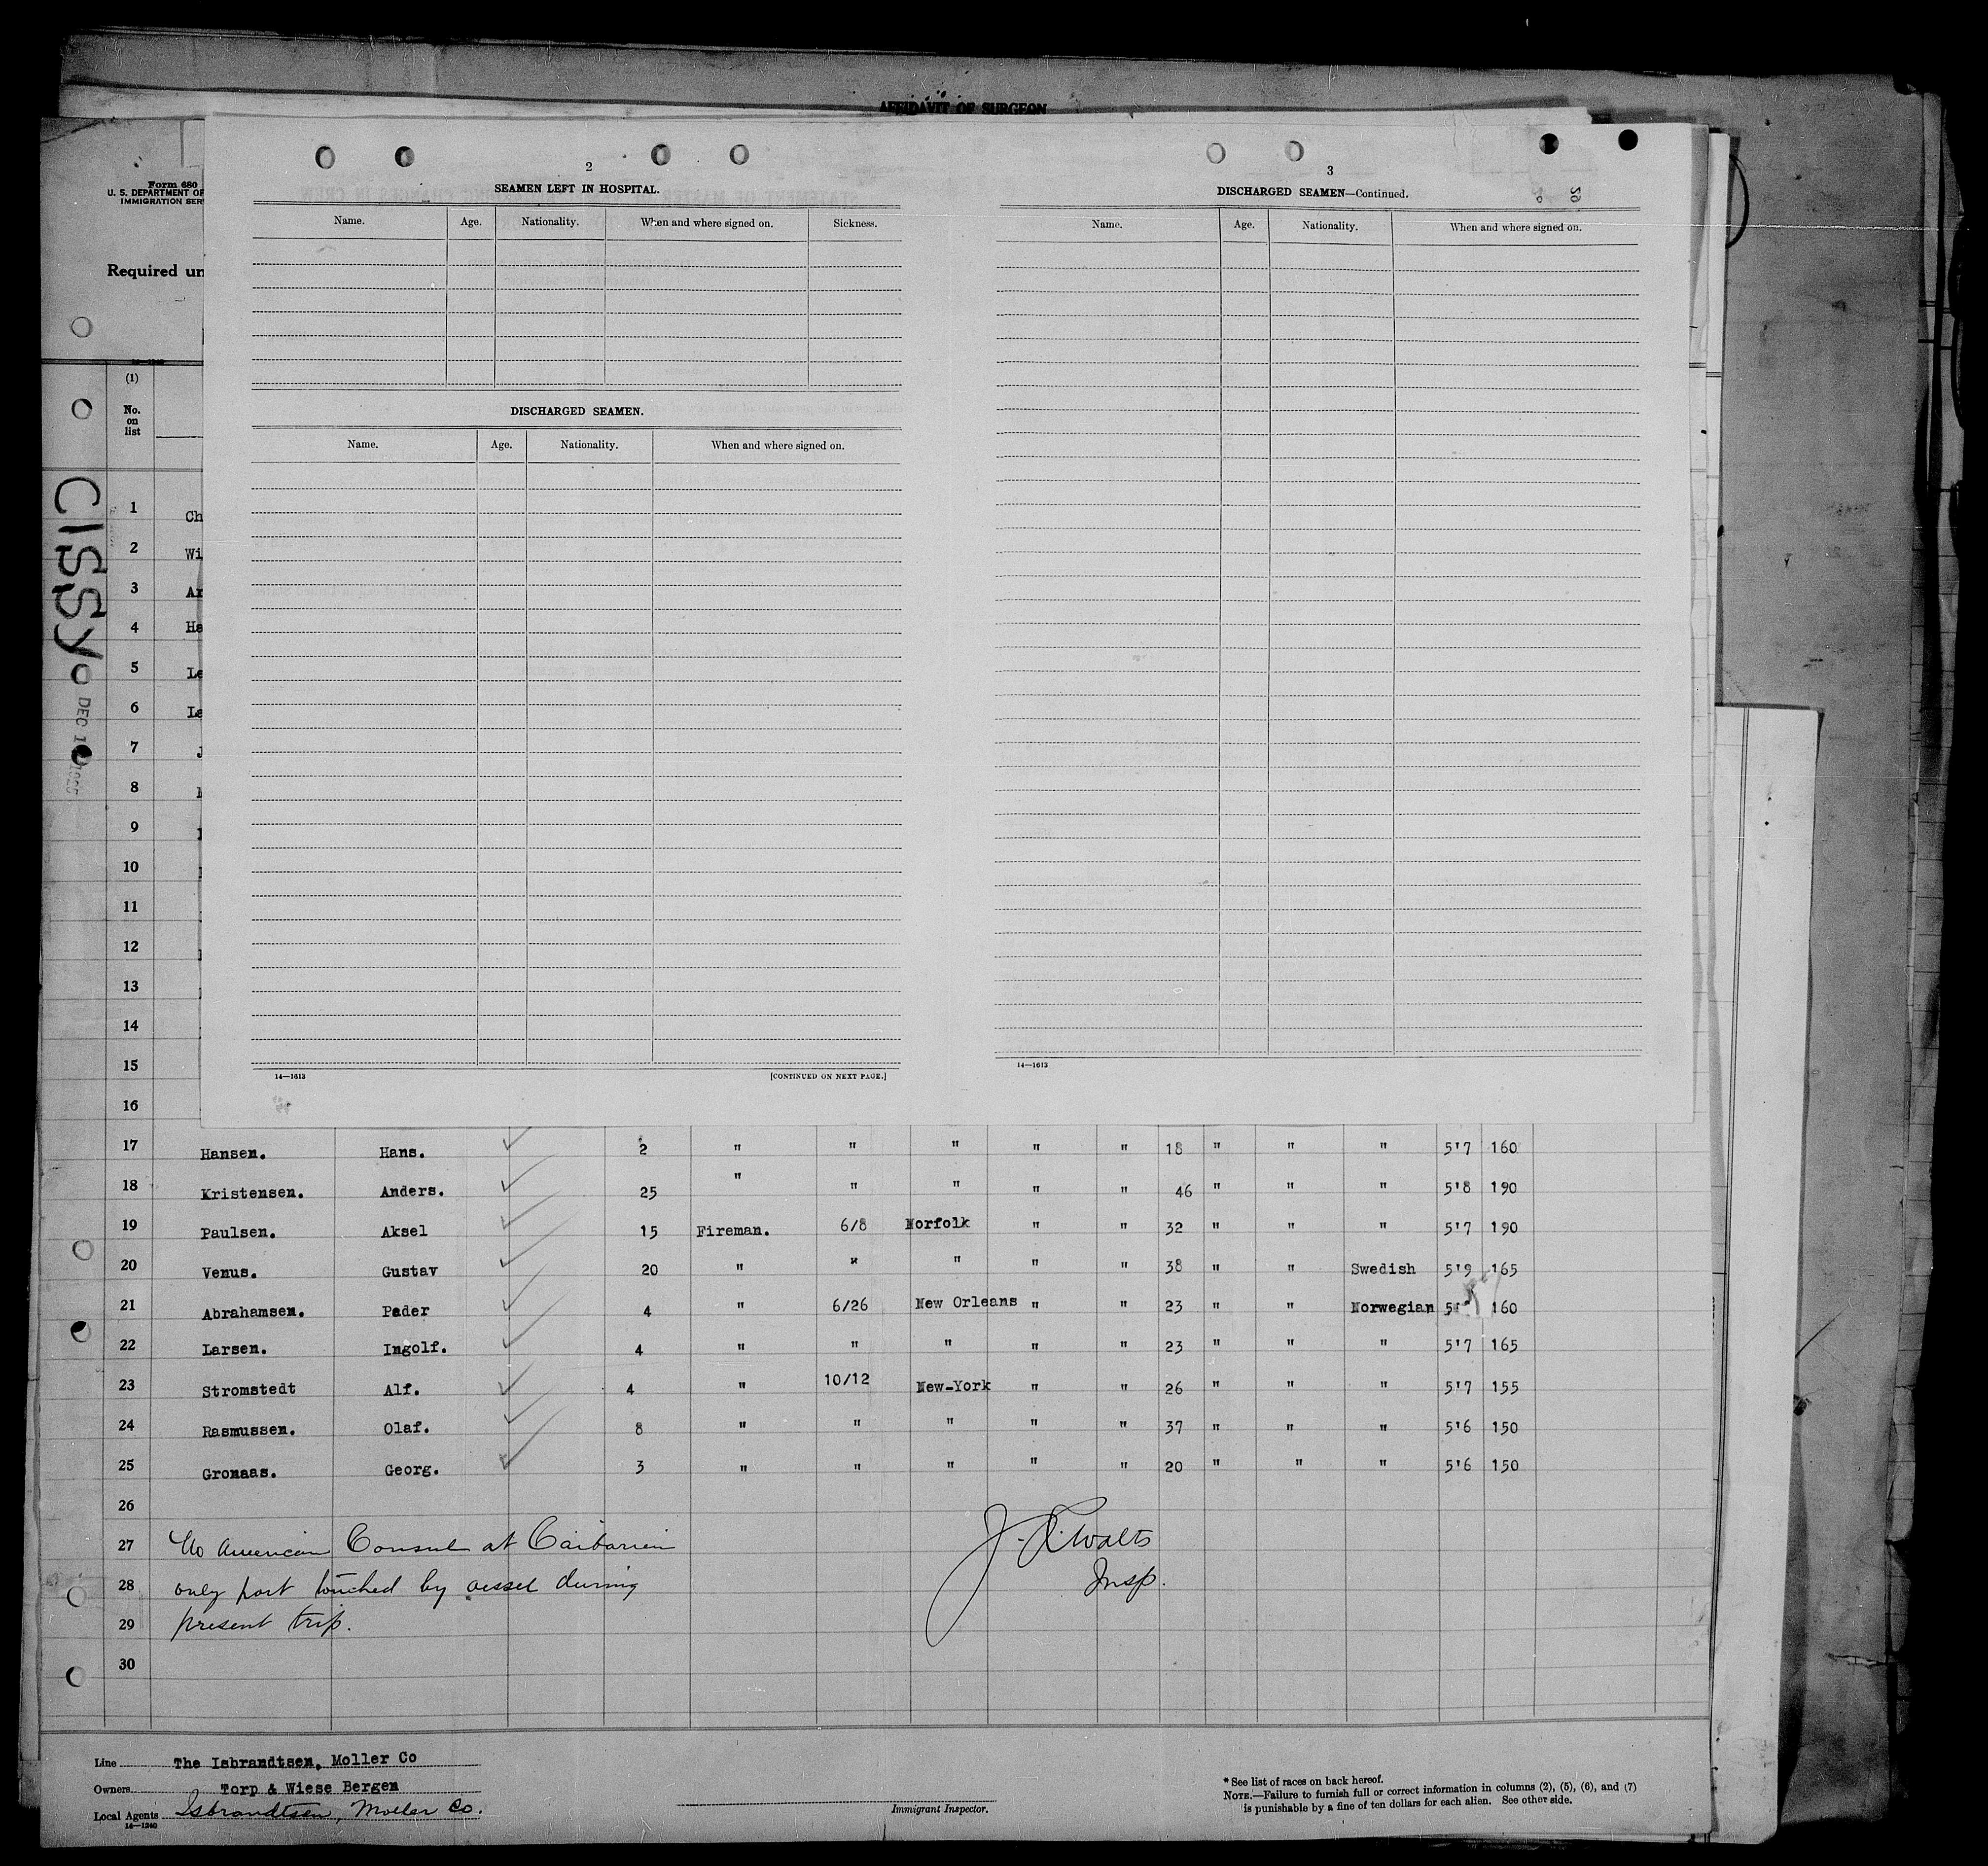 AFFIDAVIT OF SURGEON
Form 680
U. S. DEPARTMENT OF
IMMIGRATION SER
Required un
14—1240
(1)
No.
on
list
CISSy
DEC 1
1 Ch
2 Wi
3 Ar
4 Ha
5 Le
6 La
7 J
8
9
10
11
12
13
14
15
16
2
SEAMEN LEFT IN HOSPITAL.
Name. Age. Nationality. When and where signed on. Sickness.
DISCHARGED SEAMEN.
Name. Age. Nationality. When and where signed on.
14—1613 [CONTINUED ON NEXT PAGE.]
3
DISCHARGED SEAMEN—Continued.
Name. Age. Nationality. When and where signed on.
14—1613
17 Hansen. Hans. 2 " " " " " 18 " " " 5'7 160
18 Kristensen. Anders. 25 " " " " " 46 " " " 5'8 190
19 Paulsen. Aksel 15 Fireman. 6/8 Norfolk " " 32 " " " 5'7 190
20 Venus. Gustav 20 " " " " " 38 " " Swedish 5'9 165
21 Abrahamsen. Peder 4 " 6/26 New Orleans " " 23 " " Norwegian 160
22 Larsen. Ingolf. 4 " " " " " 23 " " " 5'7 165
23 Stromstedt Alf. 4 " 10/12 New-York " " 26 " " " 5'7 155
24 Rasmussen. Olaf. 8 " " " " " 37 " " " 5'6 150
25 Gronaas. Georg. 3 " " " " " 20 " " " 5'6 150
26
27 No American Consul at Caibarien
28 only port touched by vessel during
29 present trip.
30
J. R. Walts
Insp.
Line The Isbrandtsen, Moller Co
Owners Torp & Wiese Bergen
Local Agents Isbrandtsen, Moller Co.
14—1240
Immigrant Inspector.
* See list of races on back hereof.
NOTE.—Failure to furnish full or correct information in columns (2), (5), (6), and (7)
is punishable by a fine of ten dollars for each alien. See other side.